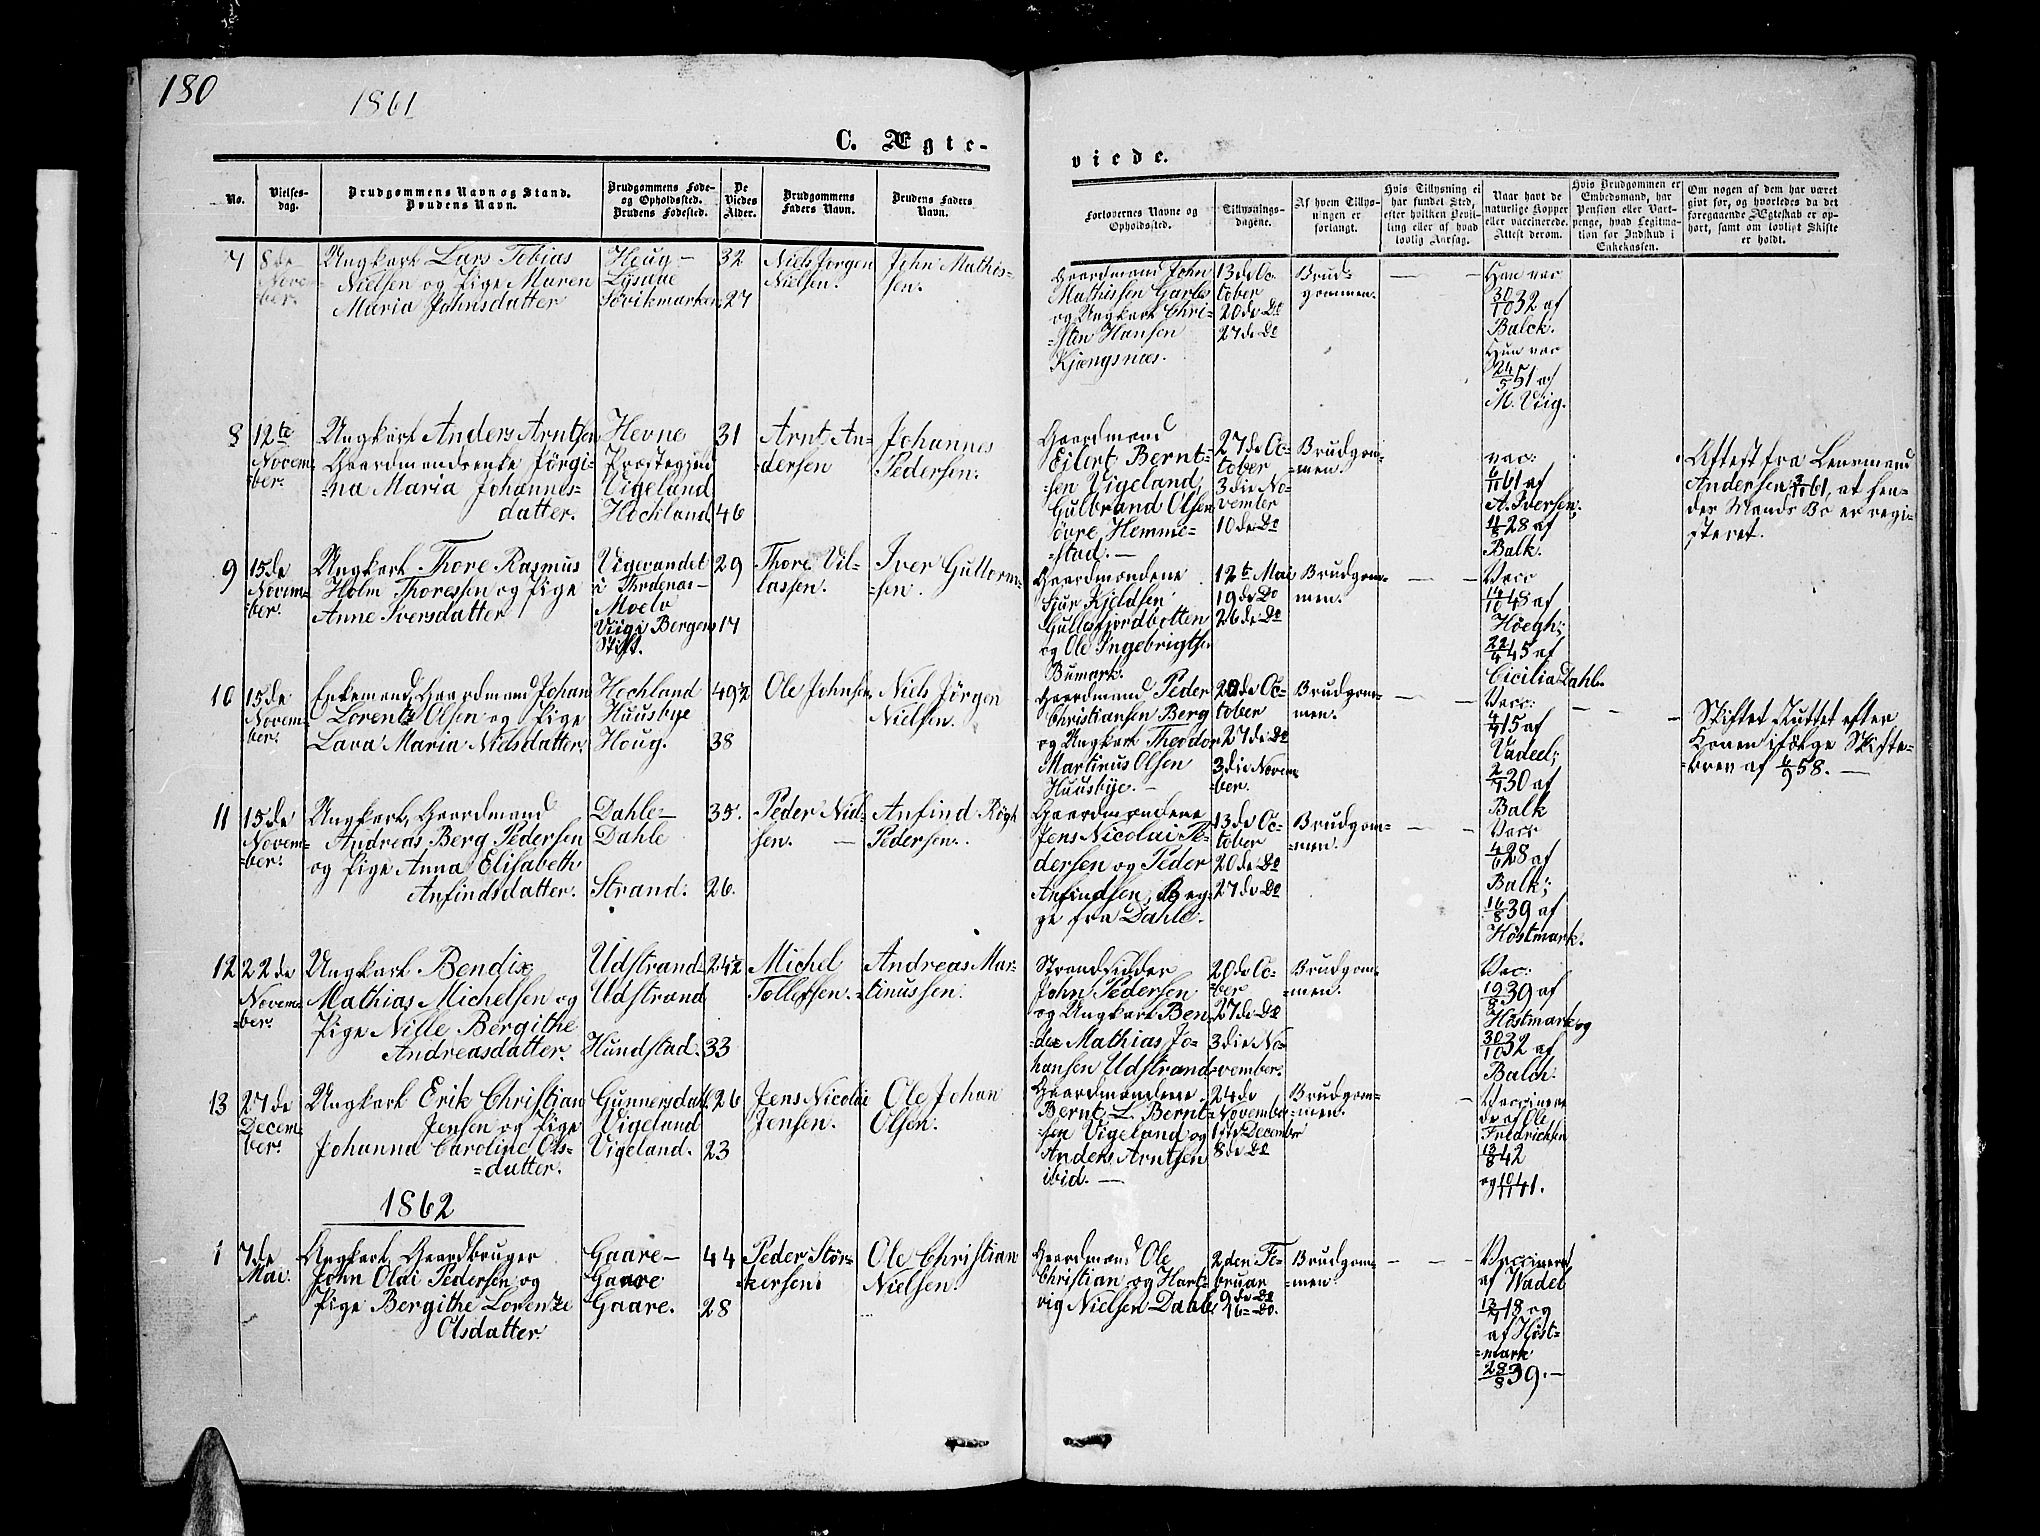 180
1861
C. Ægte-
viede.
No.
Vielses-
dag.
Brudgommens Navn og Stand.
Brudens Navn.
Brudgommens Føde-
og Opholdssted.
Brudens Fødested.
De
Viedes
Alder.
Brudgommens
Faders Navn.
Brudens Faders
Navn.
Forlovernes Navne og
Opholdssted.
Tillysnings-
dagene.
Af hvem Tillys-
ningen er
forlangt.
Hvis Tillysning ei
har fundet Sted,
efter hvilken Bevil-
ling eller af hvad
lovlig Aarsag.
Naar havt de
naturlige Kopper
eller vaccinerede.
Attest derom.
Hvis Brudgommen er
Embedsmand, har
Pension eller Vart-
penge, hvad Legitima-
tion for Indskud i
Enkekassen.
Om nogen af dem har været
gift før, og hvorledes da det
foregaaende Ægteskab er op-
hørt, samt om lovligt Skifte
er holdt.
7
8de
Novem-
ber.
Ungkarl Lars Tobias
Nielsen og Pige Maren
Maria Johnsdatter
Houg-
Lysnæ
Sovikmarken
32
27
Niels Jørgen
Nielsen.
John Mathis-
sen.
Gaardmand John
Mathissen Garles
og Ungkarl Chri-
=sten Hansen
Kjøngsnæs.
13de Oc-
tober
20de Do
27de Do
Brud-
gommen.
Han var
30/10 32 af
Balck.
Hun var
24/5 51 af
M. Viig.
8
12te
Novem-
ber.
Ungkarl Anders Arntsen
Gaardmandsenke Jørgi-
=na Maria Johannes-
datter.
Hevne
Præstegjeld
Vigeland
Hockland.
31
46
Arnt An-
=dersen
Johannes
Pedersen.
Gaardmand
Eilert Bernt-
sen Vigeland,
Gulbrand Olsen
Søvre Hemme-
=stad.
27de Oc-
tober
3die No-
vember
10de Do
Brudgom-
=men.
vac:
6/11 61 af
A. Iversen;
11/8 28 af
Balk.
Attest fra Lensmand
Andersen 2/11 61, at hen-
des Mands Bo er regi-
steret.
9
15de
Novem-
ber.
Ungkarl Thore Rasmus
Holm Thoressen og Pige
Anne Iversdatter
Vigevandet
i Throenæs-
Moelv
Viigi Bergens
Stift.
29
17
Thore Vil-
lassen.
Iver Guttorm-
=sen.
Gaardmændene
Sjur Kjeldsen
Gullesfjordbotten
og Ole Ingebrigtsen
Bumark.
12te Mai
19de Do
26de Do
Brudgom-
men.
Vacc
14/10 48 af
Høegh;
22/4 45 af
Cicilia Dahl.
10
15de
Novem-
ber.
Enkemand, Gaardmand Johan
Lorents Olsen og Pige
Lava Maria Nielsdatter.
Hockland
Huusbye
Houg.
49 1/2
38
Ole Johnsen
Niels Jörgen
Nielsen.
Gaardmand Peder
Christiansen Berg
og Ungkarl Theodor
Martinus Olsen
Huusbye.
20de Oc-
tober
27de Do
3die Novem-
=ber.
Brudgom-
men.
Vacc:
4/7 15 af
Vadeel;
2/7 30 af
Balk
Skiftet sluttet efter
Konen ifølge Skifte-
=brev af 6/9 58.
11
15de
Novem-
=ber.
Ungkarl, Gaardmand
Andreas Berg Pedersen
og Pige Anna Elisabeth
Anfindsdatter.
Dahle-
Dahle
Strand.
35.
26.
Peder Niel-
sen.
Anfind Røgh
Pedersen.
Gaardmændene
Jens Nicolai Pe-
dersen og Peder
Anfindsen, Beg-
ge fra Dahle.
13de Oc-
tober
20de Do
27de Do
Brudgom-
=men.
Vacc
4/6 28 af
Balk;
16/8 39 af
Høstmark.
12
22de
Novem-
=ber.
Ungkarl Bendix
Mathias Michelsen og
Pige Nille Bergithe
Andreasdatter.
Udstrand-
Udstrand
Hundstad.
24 1/2
33
Michel
Tollefsen.
Andreas Mar-
tinussen.
Strandsidder
John Pedersen
og Ungkarl Ben-
=dix Mathias Jo-
hansen Udstrand
20de Oc-
ber
27de Do
3die No-
vember.
Brudgom-
=men.
Vac:
19/8 39 af
Høstmark og
30/10 32 af
Balch.
13
27de
Decem-
ber.
Ungkarl Erik Christian
Jensen og Pige
Johanna Caroline Ols-
=datter.
Gunnersdahl.
Vigeland
Vigeland.
26
23
Jens Nicolai
Jensen.
Ole Johan
Olsen.
Gaardmændene
Bernt L. Bernt-
=sen Vigeland og
Anders Arntsen
ibid.
24de
November
1ste December
8de Do
Brudgom-
=men.
Vaccinere-
de af Ole
Fredrichsen
13/8 42
og 10/11 41.
1862
1
7de
Mai.
Ungkarl, Gaardbruger
John Olai Pedersen og
Pige Bergithe Lorentze
Olsdatter.
Gaare-
Gaare
Gaare.
44
28
Peder Stør-
=kersen
Ole Christian
Nielsen.
Gaardmand Ole
Christian og Hart-
vig Nielsen Dahle
2den Fe-
bruar
9de Do
16-Do.
Brudgom-
=men.
Vaccineret
af Wadel
13/7 18 og
af Høst-
=mark
28/8 39.